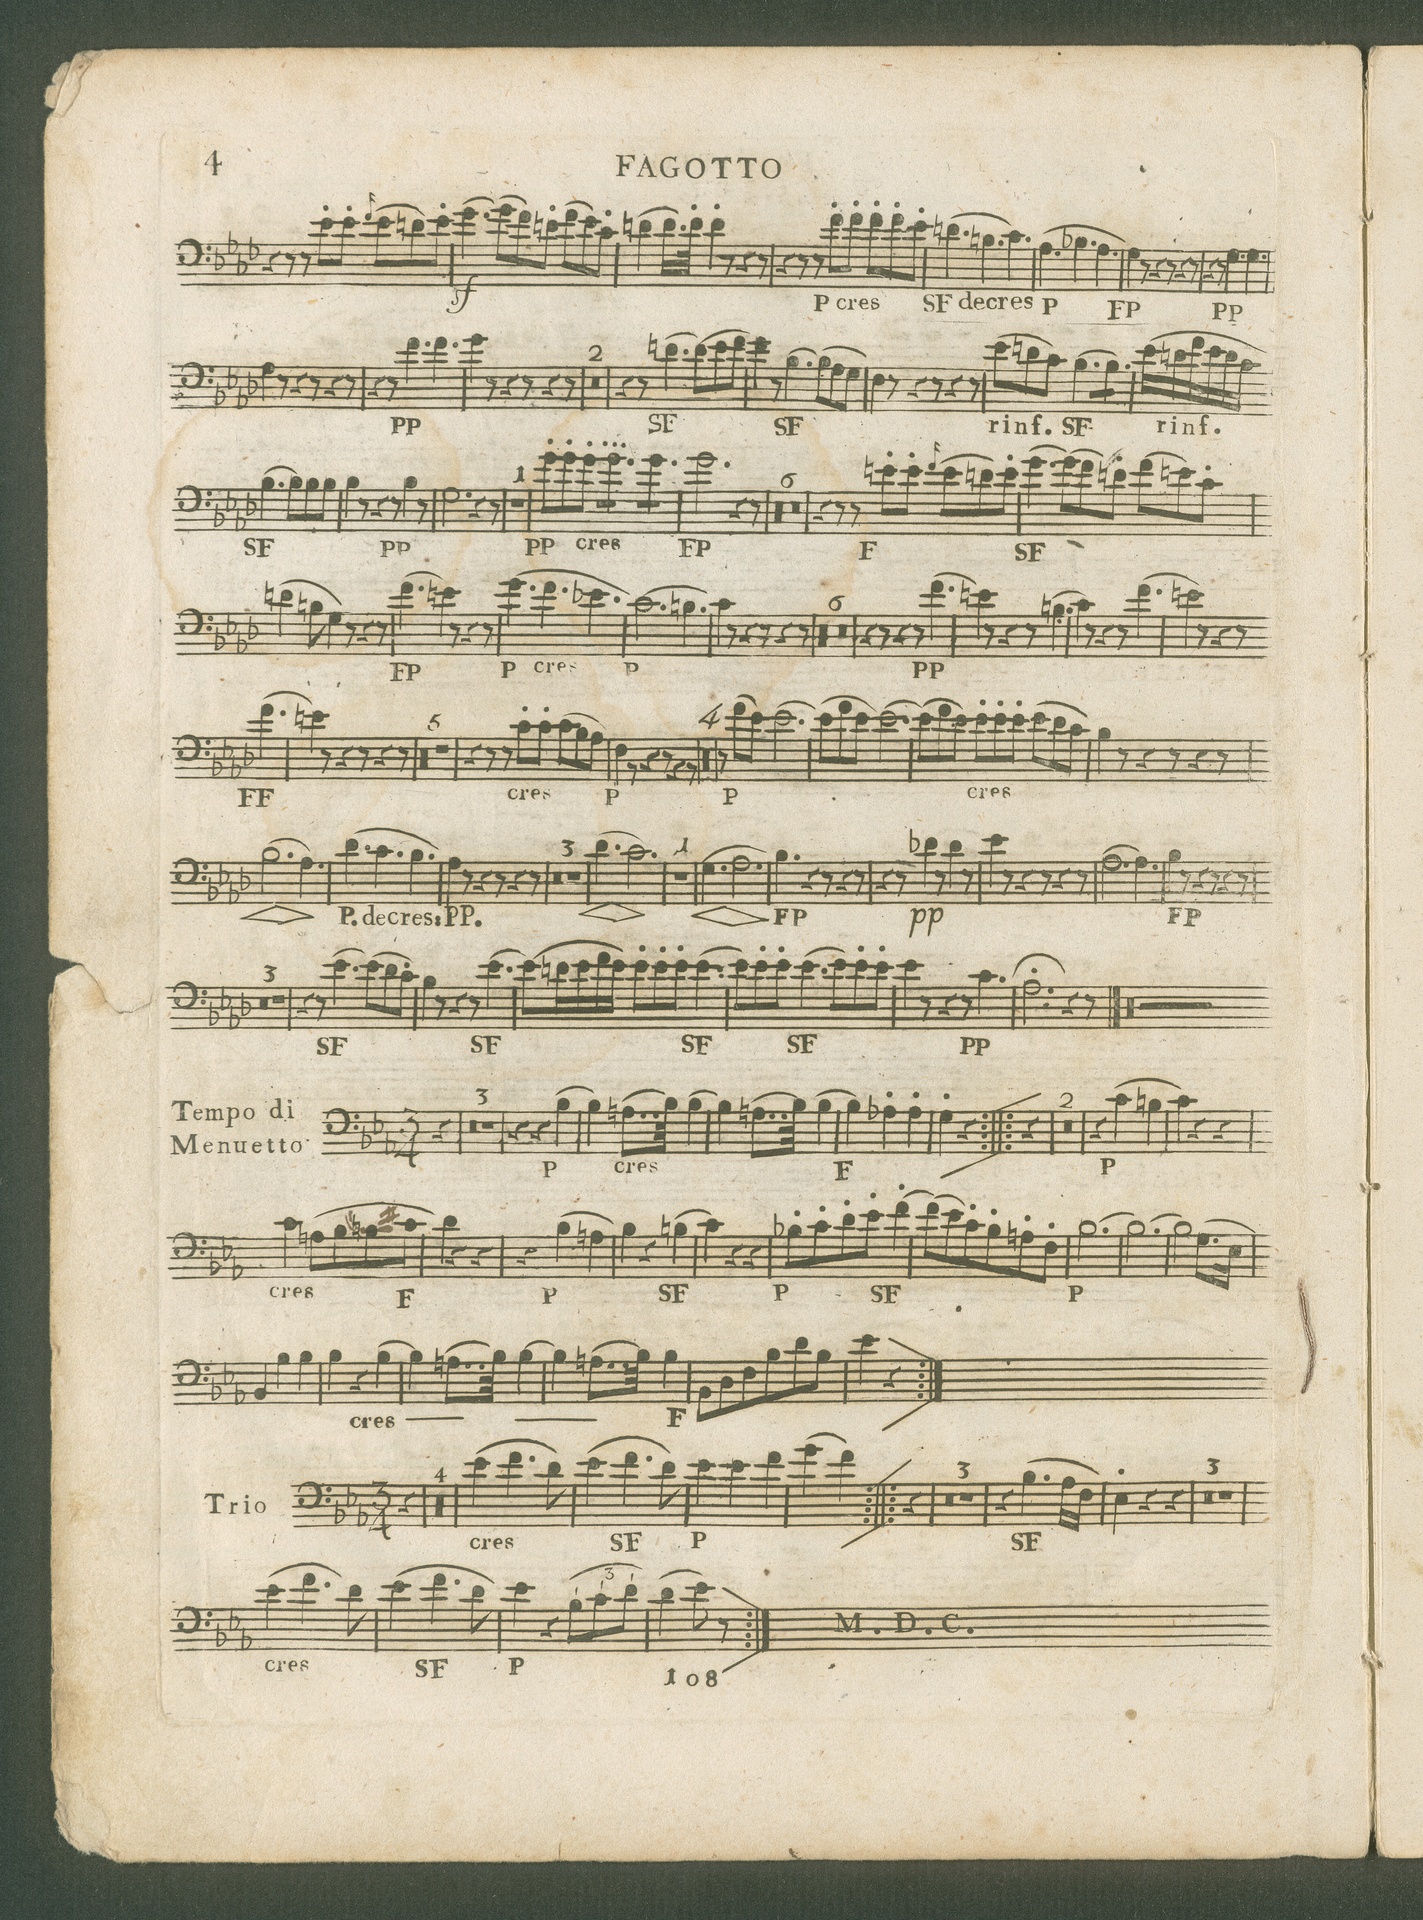 4
FAGOTTO
sf P cres SF decres P FP PP
2
PP SF SF rinf. SF rinf.
1 6
SF PP PP cres FP F SF
6
FP P cres P PP
5 4
FF cres P P cres
3 1
P. decres: PP. FP pp FP
3
SF SF SF SF PP
Tempo di
Menuetto
3 3 4 2
P cres F P
cres F P SF P SF P
cres F
Trio
3 4 4 3 3
cres SF P SF
3
M. D. C.
cres SF P 108